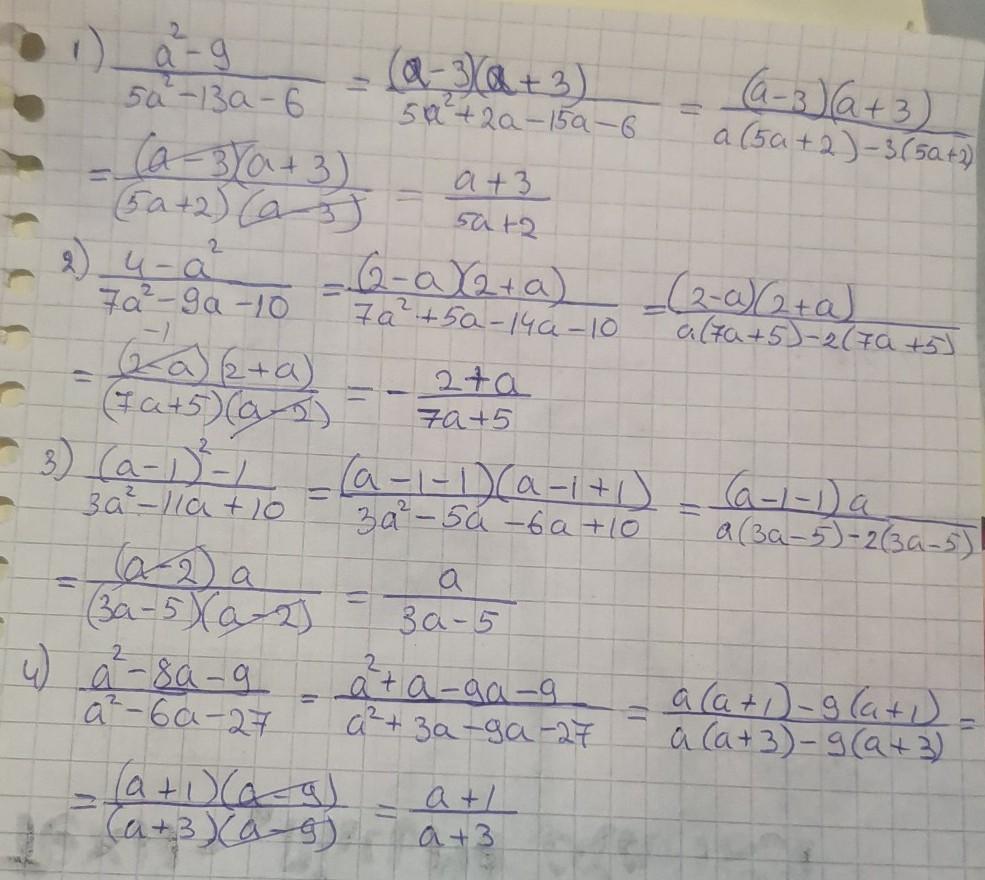 1) (a²-9)/(5a²-13a-6) = ((a-3)(a+3))/(5a²+2a-15a-6) = ((a-3)(a+3))/(a(5a+2)-3(5a+2))
= ((a-3)(a+3))/((5a+2)(a-3)) = (a+3)/(5a+2)
2) (4-a²)/(7a²-9a-10) = ((2-a)(2+a))/(7a²+5a-14a-10) = ((2-a)(2+a))/(a(7a+5)-2(7a+5))
-1
= ((2-a)(2+a))/((7a+5)(a-2)) = -(2+a)/(7a+5)
3) ((a-1)²-1)/(3a²-11a+10) = ((a-1-1)(a-1+1))/(3a²-5a-6a+10) = ((a-1-1)a)/(a(3a-5)-2(3a-5))
= ((a-2)a)/((3a-5)(a-2)) = a/(3a-5)
4) (a²-8a-9)/(a²-6a-27) = (a²+a-9a-9)/(a²+3a-9a-27) = (a(a+1)-9(a+1))/(a(a+3)-9(a+3)) =
= ((a+1)(a-9))/((a+3)(a-9)) = (a+1)/(a+3)